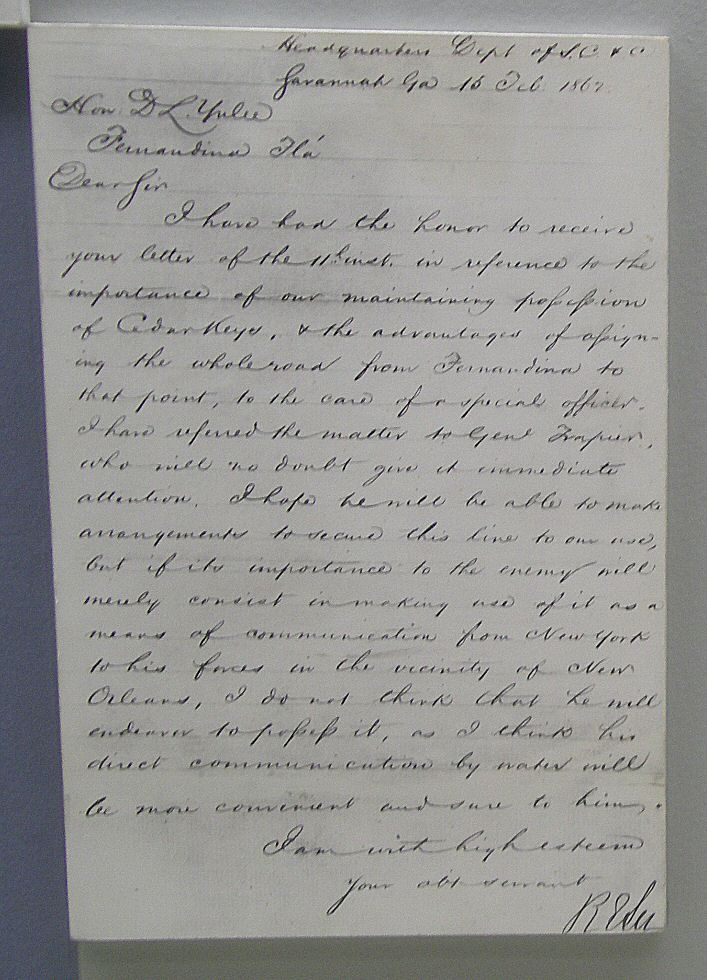 Headquarters Dept of S.C. & G
Savannah Ga 15 Feb. 1862
Hon. D L. Yulee
Fernandina Fla
Dear Sir
I have had the honor to receive
your letter of the 11th inst. in reference to the
importance of our maintaining possession
of Cedar Keys, & the advantages of assign-
ing the whole road from Fernandina to
that point, to the care of a special officer.
I have referred the matter to Genl Trapier,
who will no doubt give it immediate
attention. I hope he will be able to make
arrangements to secure this line to our use,
but if its importance to the enemy will
merely consist in making use of it as a
means of communication from New York
to his forces in the vicinity of New
Orleans, I do not think that he will
endeavor to possess it, as I think his
direct communication by water will
be more convenient and sure to him.
I am with high esteem
your obt servant
R E Lee